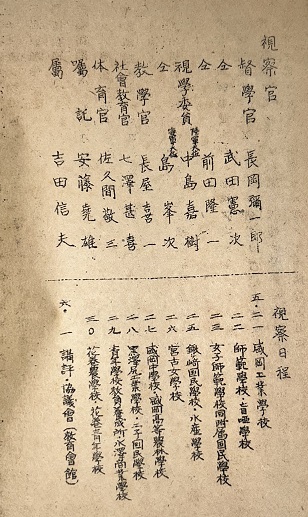 視察官
督學官 長岡彌一郎
仝 武田憲次
仝 前田隆一
視學委員 陸軍大佐 中島嘉樹
仝 海軍大佐 島峯次
教學官 長屋喜一
社會教育官 七澤甚喜
体育官 佐久間敬三
囑託 安藤堯雄
屬 吉田信夫
視察日程
五・二一 盛岡工業學校
二二 師範學校、盲唖學校
二三 女子師範學校同附属國民學校
二五 鍬崎國民學校、水産學校
二六 宮古女學校
二七 盛岡中學校、盛岡高等農林學校
二八 黒澤尻工業學校、二子國民學校
二九 青年學校教育養成所、水澤商業學校
三〇 花巻農學校、花巻青年學校
六・一 講評・協議會(教育會館)